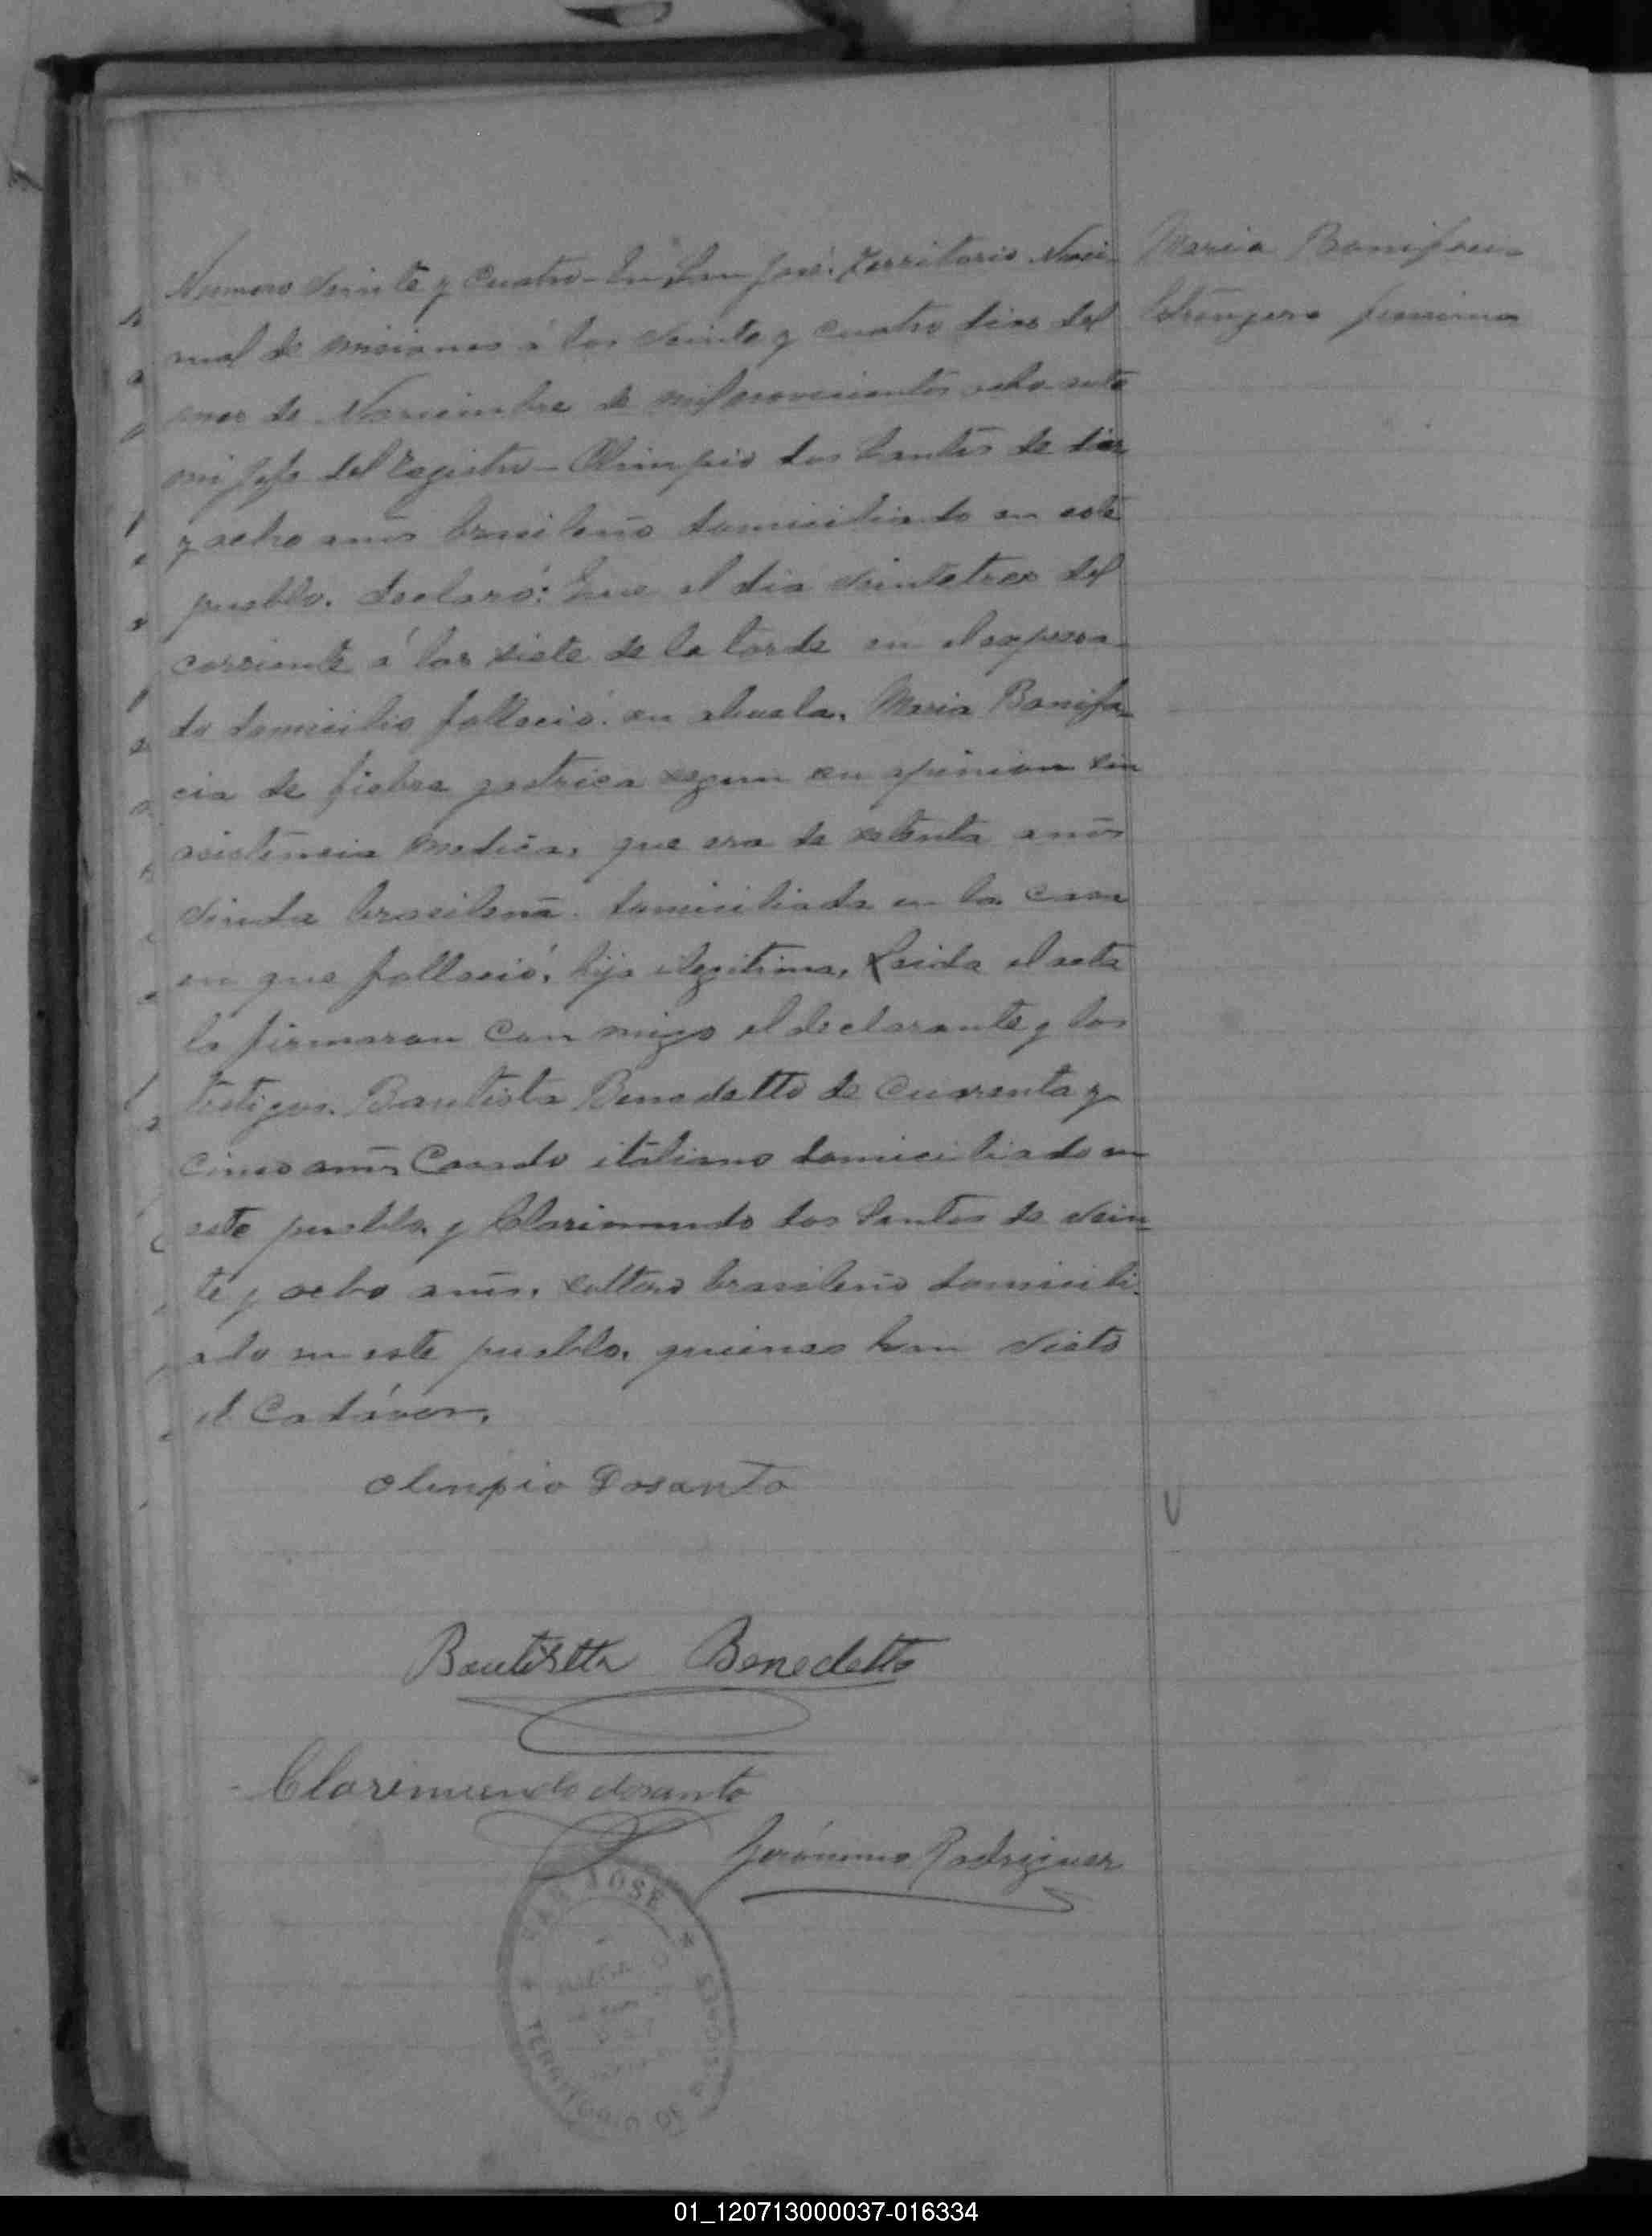 Maria Bonifacia
Estrangera femenina
Numero veinte y cuatro – En San José. Territorio Naci-
onal de Misiones á los veinte y cuatro dias del
mes de Noviembre de mil novecientos ocho ante
mi Jefe del Registro – Olimpio dos Santos de diez
y ocho anõs brasileño domiciliado en este
pueblo. declaró: Que el dia veintetres del
corriente á las siete de la tarde en el expresa-
do domicilio falleció su abuela. Maria Bonifa-
cia de fiebre gastrica segun su opinion sin
asistencia medica, que era de setenta anõs
viuda brasilena. domiciliada en la casa
en que falleció, hija ilegitima, Leida el acta
la firmaron con migo el declarante y los
testigos. Bautista Benedetto de cuarenta y
cinco anõs Casado italiano domiciliado en
este pueblo. y Clarimundo dos Santos de vein-
te y ocho anõs. soltero brasileño domicili-
ado en este pueblo. quienes han visto
el Cadáver.
Olimpio Dosanto
Bautistta Benedetto
Clarimundo dosanto
Gerónimo Rodriguez
SAN JOSE
TERRITORIO DE MISIONES
01_120713000037-016334